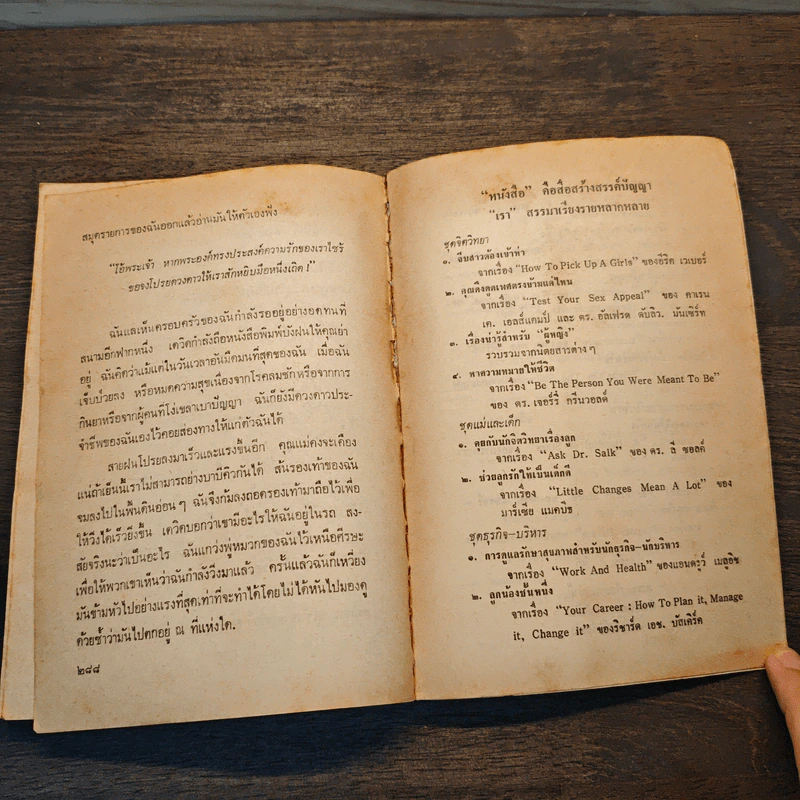 สมุดรายการของฉันออกแล้วอ่านมันให้ตัวเองฟัง
“โอ้พระเจ้า หากพระองค์ทรงประสงค์ความรักของเราไซร้
ขอจงโปรยดวงดาวให้เราสักหยิบมือหนึ่งเถิด !”
ฉันและเห็นครอบครัวของฉันกำลังรออยู่อย่างอดทนที่
สนามอีกฟากหนึ่ง เดวิดกำลังถือหนังสือพิมพ์บังฝนให้คุณย่า
อยู่ ฉันคิดว่าแม้แต่ในวันเวลาอันมืดมนที่สุดของฉัน เมื่อฉัน
เจ็บป่วยลง หรือหมดความสุขเนื่องจากโรคลมชักหรือจากการ
กินยาหรือจากผู้คนที่โง่เขลาเบาปัญญา ฉันก็ยังมีดวงดาวประ-
จำชีพของฉันเองไว้คอยส่องทางให้แก่ตัวฉันได้
สายฝนโปรยลงมาเร็วและแรงขึ้นอีก คุณแม่คงจะเคือง
แน่ถ้าเย็นนี้เราไม่สามารถย่างบาบีคิวกันได้ ส้นรองเท้าของฉัน
จมลงไปในพื้นดินอ่อนๆ ฉันจึงก้มลงถอดรองเท้ามาถือไว้เพื่อ
ให้วิ่งได้เร็วยิ่งขึ้น เดวิดบอกว่าเขามีอะไรให้ฉันอยู่ในรถ สง-
สัยจริงนะว่าเป็นอะไร ฉันแกว่งพู่หมวกของฉันไว้เหนือศีรษะ
เพื่อให้พวกเขาเห็นว่าฉันกำลังวิ่งมาแล้ว ครั้นแล้วฉันก็เหวี่ยง
มันข้ามหัวไปอย่างแรงที่สุดเท่าที่จะทำได้โดยไม่ได้หันไปมองดู
ด้วยซ้ำว่ามันไปตกอยู่ ณ ที่แห่งใด.
๒๘๘
“หนังสือ” คือสื่อสร้างสรรค์ปัญญา
“เรา” สรรมาเรียงรายหลากหลาย
ชุดจิตวิทยา
๑. จีบสาวต้องเข้าท่า
จากเรื่อง “How To Pick Up A Girls” ของอีริค เวเบอร์
๒. คุณดึงดูดเพศตรงข้ามแค่ไหน
จากเรื่อง “Test Your Sex Appeal” ของ คาเรน
เค. เอลส์แคมป์ และ ดร. อัลเฟรด ดับลิว. มันเซิร์ท
๓. เรื่องน่ารู้สำหรับ “ผู้หญิง”
รวบรวมจากนิตยสารต่างๆ
๔. หาความหมายให้ชีวิต
จากเรื่อง “Be The Person You Were Meant To Be”
ของ ดร. เจอร์รี่ กรีนวอลด์
ชุดแม่และเด็ก
๑. คุยกับนักจิตวิทยาเรื่องลูก
จากเรื่อง “Ask Dr. Salk” ของ ดร. ลี ซอลค์
๒. ช่วยลูกรักให้เป็นเด็กดี
จากเรื่อง “Little Changes Mean A Lot” ของ
มาร์เซีย แมคบิธ
ชุดธุรกิจ-บริหาร
๑. การดูแลรักษาสุขภาพสำหรับนักธุรกิจ-นักบริหาร
จากเรื่อง “Work And Health” ของแอนดรูว์ เมลูอิช
๒. ลูกน้องชั้นหนึ่ง
จากเรื่อง “Your Career : How To Plan it, Manage
it, Change it” ของริชาร์ด เอช. บัสเคิร์ค